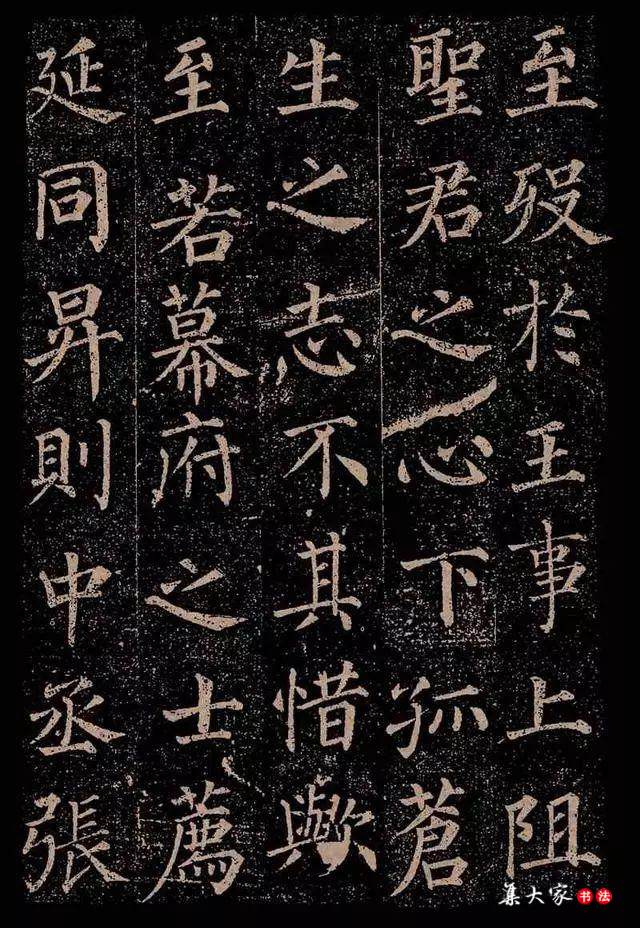 至歿於王事上阻
聖君之心下孤蒼
生之志不其惜歟
至若幕府之士薦
延同昇則中丞張
集大家书法